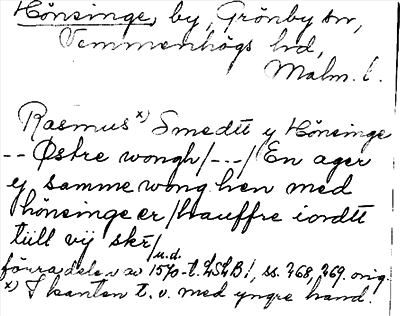 Hönsinge, by, Grönby sn,
Vemmenhögs hd,
Malm. l.
Rasmus x) Smedtt y Hönsinge
-- Østre wongh/---/ En ager
y samme wong hen med
hönsinge er/hauffre iordtt
tiill vij skt/
förra delen av 1570-t. LSLB1, ss. 268, 269. orig.
x) I kanten t. v. med yngre hand.